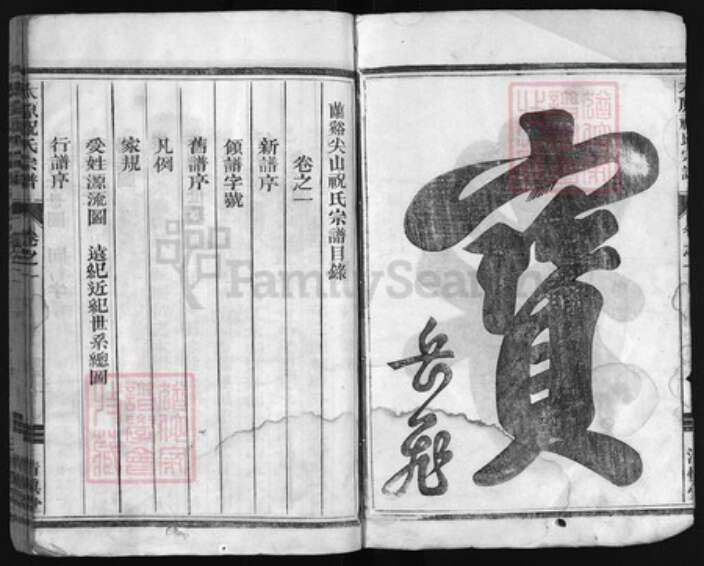 寶
岳飛
蘭谿尖山祝氏宗譜目錄
卷之一
新譜序
領譜字號
舊譜序
凡例
家規
受姓源流圖 遠紀近紀世系總圖
行譜序
太原祝氏宗譜
卷之一
FamilySearch